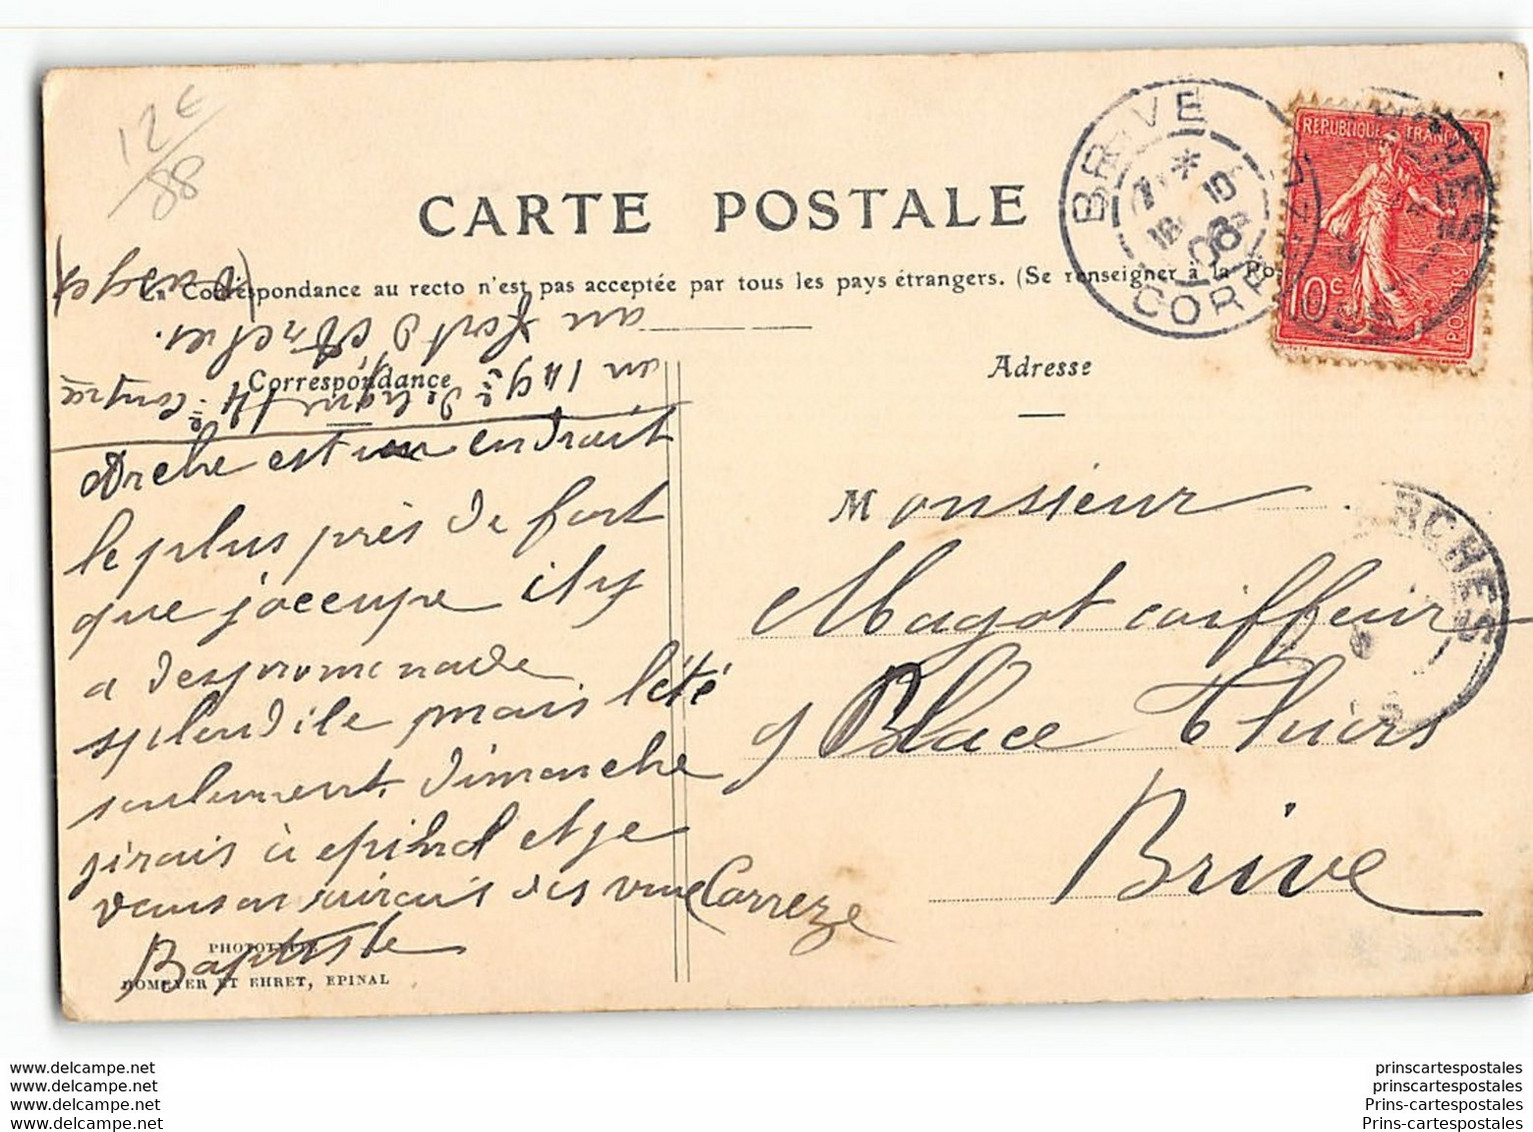 12€
88
CARTE POSTALE
La Correspondance au recto n'est pas acceptée par tous les pays étrangers. (Se renseigner à la Po
BRIVE
CORRÈZE
10
18
08
RÉPUBLIQUE FRANÇAISE
10c
POSTES
ARCHES
Correspondance
Adresse
au 149e de ligne 14e Contre
au fort d'Arches.
(Vosges)
Arche est un endroit
le plus près de fort
que j'occupe il y
a des promenade
splendile mais l'été
seulement. dimanche
jirais à epinal et je
vous en
Baptiste
Monsieur
Magot coiffeur
9 Place Thiers
Brive
Correze
ARCHES
PHOTOTYPIE
HOMEYER ET EHRET, EPINAL
www.delcampe.net
www.delcampe.net
www.delcampe.net
www.delcampe.net
prinscartespostales
prinscartespostales
Prins-cartespostales
Prins-cartespostales